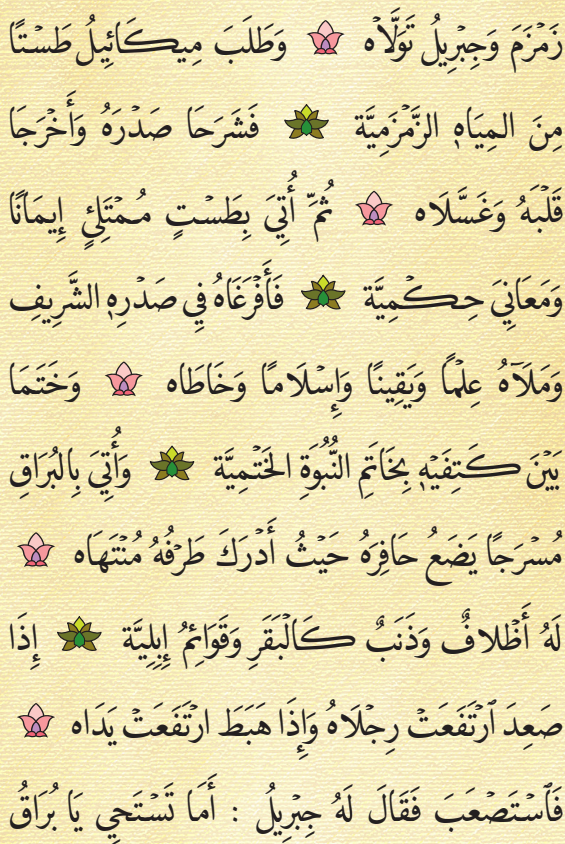 زَمْزَمَ وَجِبْرِيلُ تَوَلَّاه وَطَلَبَ مِيكَائِيلُ طَسْتًا
مِنَ المِيَاهِ الزَّمْزَمِيَّة فَشَرَحَا صَدْرَهُ وَأَخْرَجَا
قَلْبَهُ وَغَسَّلَاه ثُمَّ أُتِيَ بِطَسْتٍ مُمْتَلِئٍ إِيمَانًا
وَمَعَانِيَ حِكْمِيَّة فَأَفْرَغَاهُ فِي صَدْرِهِ الشَّرِيفِ
وَمَلَآهُ عِلْمًا وَيَقِينًا وَإِسْلَامًا وَخَاطَاه وَخَتَمَا
بَيْنَ كَتِفَيْهِ بِخَاتَمِ النُّبُوَةِ الخَتْمِيَّة وَأُتِيَ بِالبُرَاقِ
مُسْرَجًا يَضَعُ حَافِرَهُ حَيْثُ أَدْرَكَ طَرْفُهُ مُنْتَهَاه
لَهُ أَظْلافٌ وَذَنَبٌ كَالْبَقَرِ وَقَوَائِمُ إِبِلِيَّة إِذَا
صَعِدَ ٱرْتَفَعَتْ رِجْلَاهُ وَإِذَا هَبَطَ ارْتَفَعَتْ يَدَاه
فَٱسْتَصْعَبَ فَقَالَ لَهُ جِبْرِيلُ : أَمَا تَسْتَحِي يَا بُرَاقُ